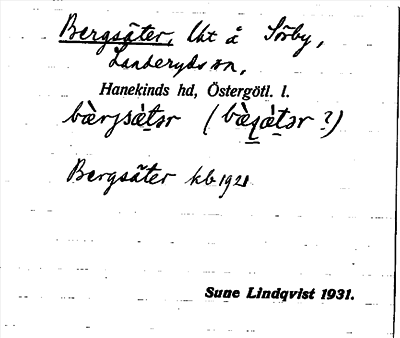 Bergsäter, lht å Sörby,
Landeryds sn,
Hanekinds hd, Östergötl. l.
bæ̀rjsæ̀tər (bæ̀ )
Bergsäter kb 1921
Sune Lindqvist 1931.